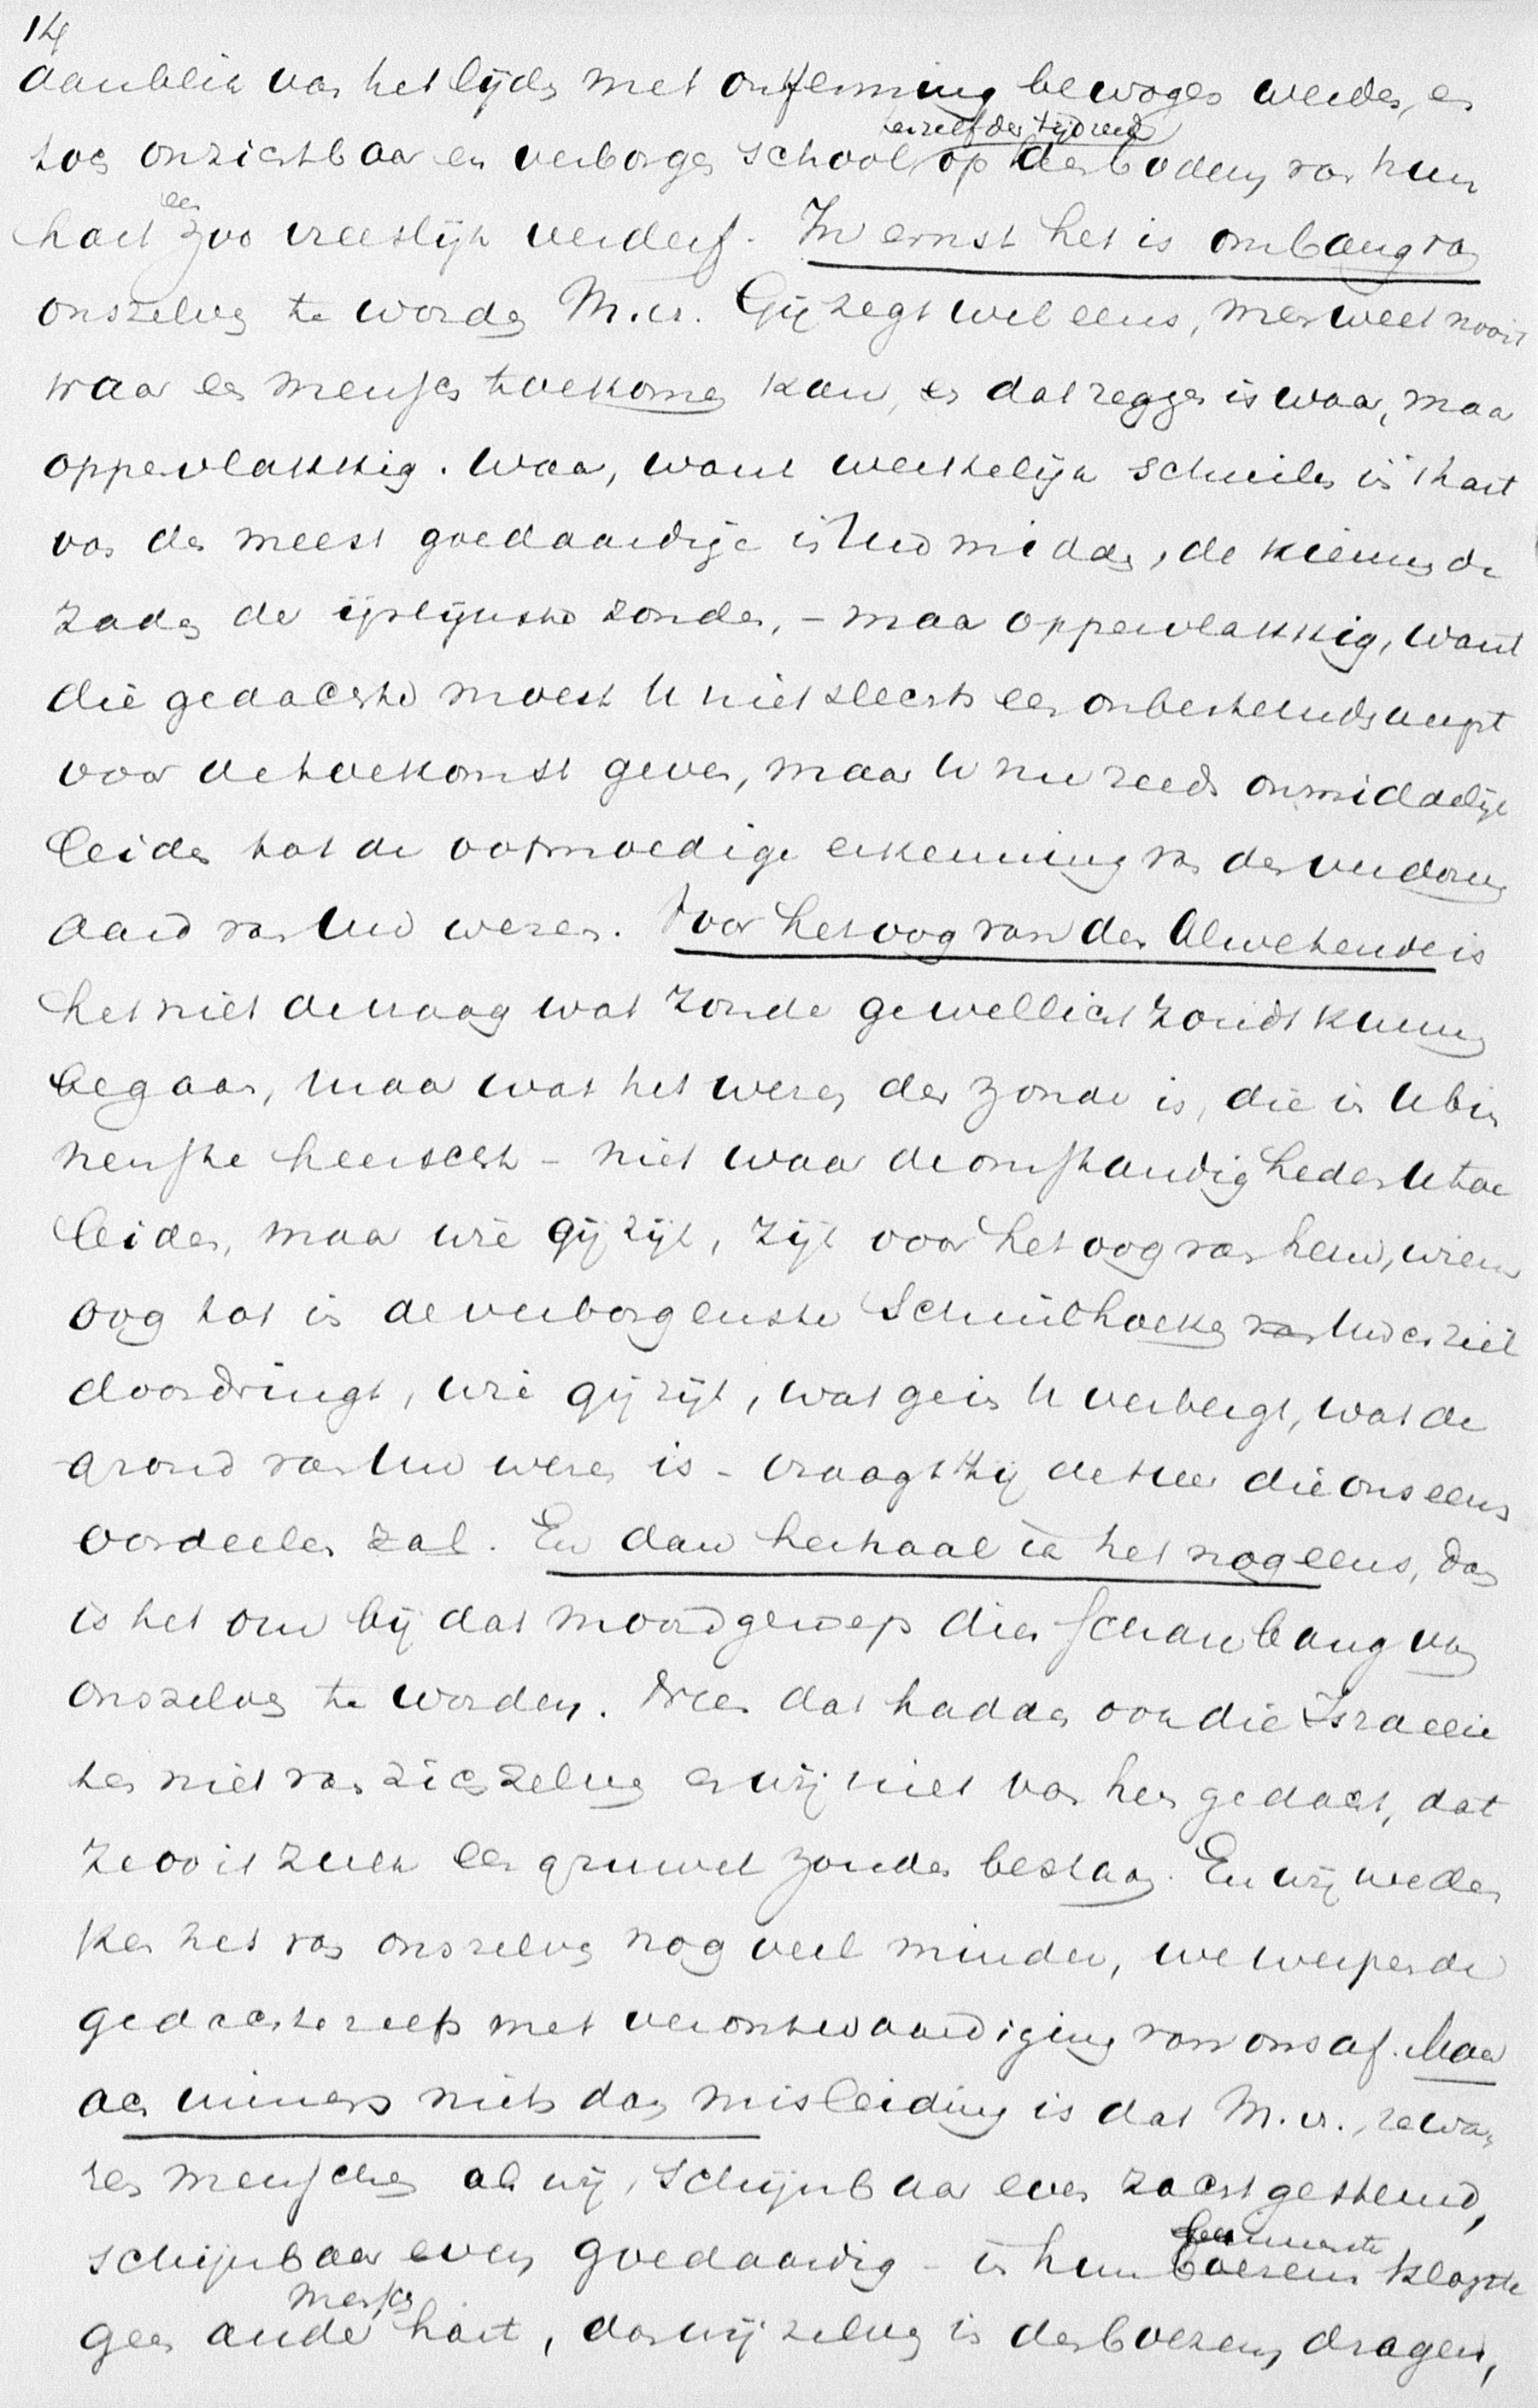 14
aanblik van het lijden met ontferming bewogen werden, en
terzelfder tijd reeds
toch onzichtbaar en verborgen school op den bodem van hun
hart een zoo vreeslijk verderf. In ernst het is om bang van
onszelven te worden M.V. Gij zegt wel eens, men weet nooit
waar een mensch toekomen kan, en dat zeggen is waar, maar
oppervlakkig. Waar, want werkelijk schuilen in 't hart
van den meest goedaardige in Uw midden, de kiemen de
zaden der ijslijkste zonden, – maar oppervlakkig, want
die gedachte moest U niet slechts een onbestemden angst
voor de toekomst geven, maar U nu reeds onmiddelijk
leiden tot de ootmoedige erkenning van den verdorven
aard van Uw wezen. Voor het oog van den Alwetende is
het niet de vraag wat zonde ge wellicht zoudt kunnen
begaan, maar wat het wezen der zonde is, die in U bin
nenste heerscht – niet waar de omstandigheden U toe
leiden, maar wie gij zijt, zijt voor het oog van hem, wiens
oog tot in de verborgenste schuilhoeken van Uwe ziel
doordringt, wie gij zijt, wat ge in U verbergt, wat de
grond van Uw wezen is – vraagt Hij de Heer die ons eens
oordeelen zal. En dan herhaal ik het nog eens, dan
is het om bij dat moordgeroep dier schare bang van
onszelven te worden. Neen dat hadden ook die Israelie
ten niet van zichzelven en wij niet van hen gedacht, dat
ze ooit zulk een gruwel zouden bestaan. En wij weder
ken het van onszelven nog veel minder, we werpen de
gedachte zelfs met verontwaardiging van ons af. Maar
ach immers niets dan misleiding is dat M.V., ze wa
ren menschen als wij, schijnbaar even zacht gestemd,
schijnbaar even goedaardig – in hun binnenste klopte
geen ander menschenhart, dan wij zelven in den boezem dragen,